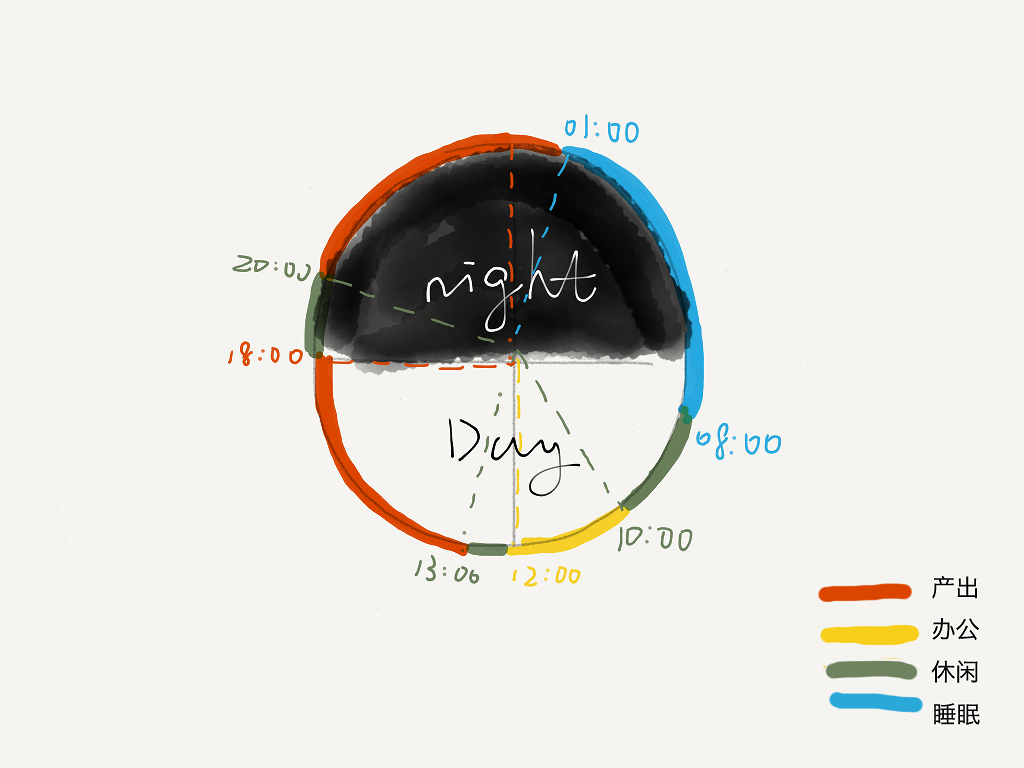 01:00
20:00
night
18:00
Day
08:00
10:00
13:00
12:00
产出
办公
休闲
睡眠